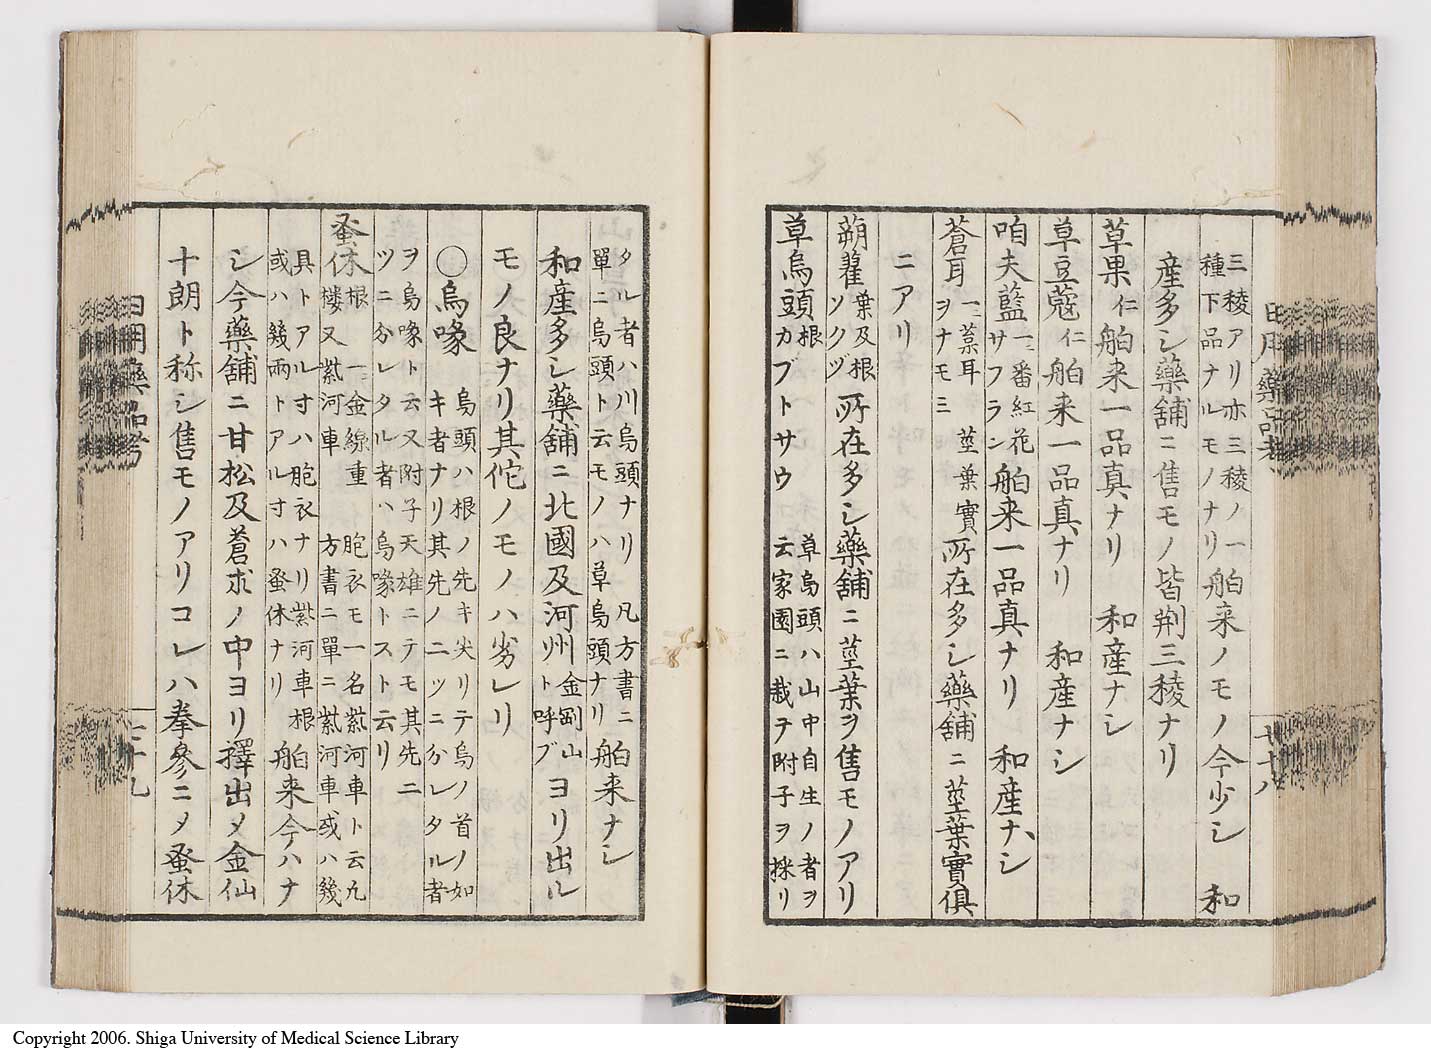 三稜アリ亦三稜ノ一
種下品ナルモノナリ
舶来ノモノ今少シ 和
産多シ藥舗ニ售モノ皆荆三稜ナリ
草果 仁 舶来一品真ナリ 和産ナシ
草豆蔻 仁 舶来一品真ナリ 和産ナシ
咱夫藍 一ニ番紅花
サフラン
舶来一品真ナリ 和産ナシ
蒼耳 一ニ葈耳
ヲナモミ
莖葉實
所在多シ藥舗ニ莖葉實俱
ニアリ
蒴藋 葉及根
ソクヅ
所在多シ藥舗ニ莖葉ヲ售モノアリ
草烏頭 根
カブトサウ
草烏頭ハ山中自生ノ者ヲ
云家園ニ栽テ附子ヲ採リ
日用藥品考
七十八
タル者ハ川烏頭ナリ 凡方書ニ
單ニ烏頭ト云モノハ草烏頭ナリ
舶来ナシ
和産多シ藥舗ニ北國及河州金剛山
リト呼ブ
ヨリ出ル
モノ良ナリ其佗ノモノハ劣レリ
〇烏喙 烏頭ハ根ノ先キ尖リテ烏ノ首ノ如
キ者ナリ其先ノ二ツニ分レタル者
ヲ烏喙ト云又附子天雄ニテモ其先二
ツニ分レタル者ハ烏喙トスト云リ
蚤休 根 一ニ金線重
楼又紫河車
胞衣モ一名紫河車ト云凡
方書ニ單ニ紫河車或ハ幾
具トアル寸ハ胞衣ナリ紫河車根
或ハ幾兩トアル寸ハ蚤休ナリ
舶来今ハナ
シ今藥舗ニ甘松及蒼朮ノ中ヨリ擇出メ金仙
十朗ト称シ售モノアリコレハ拳參ニメ蚤休
日用藥品考
七十九
Copyright 2006. Shiga University of Medical Science Library